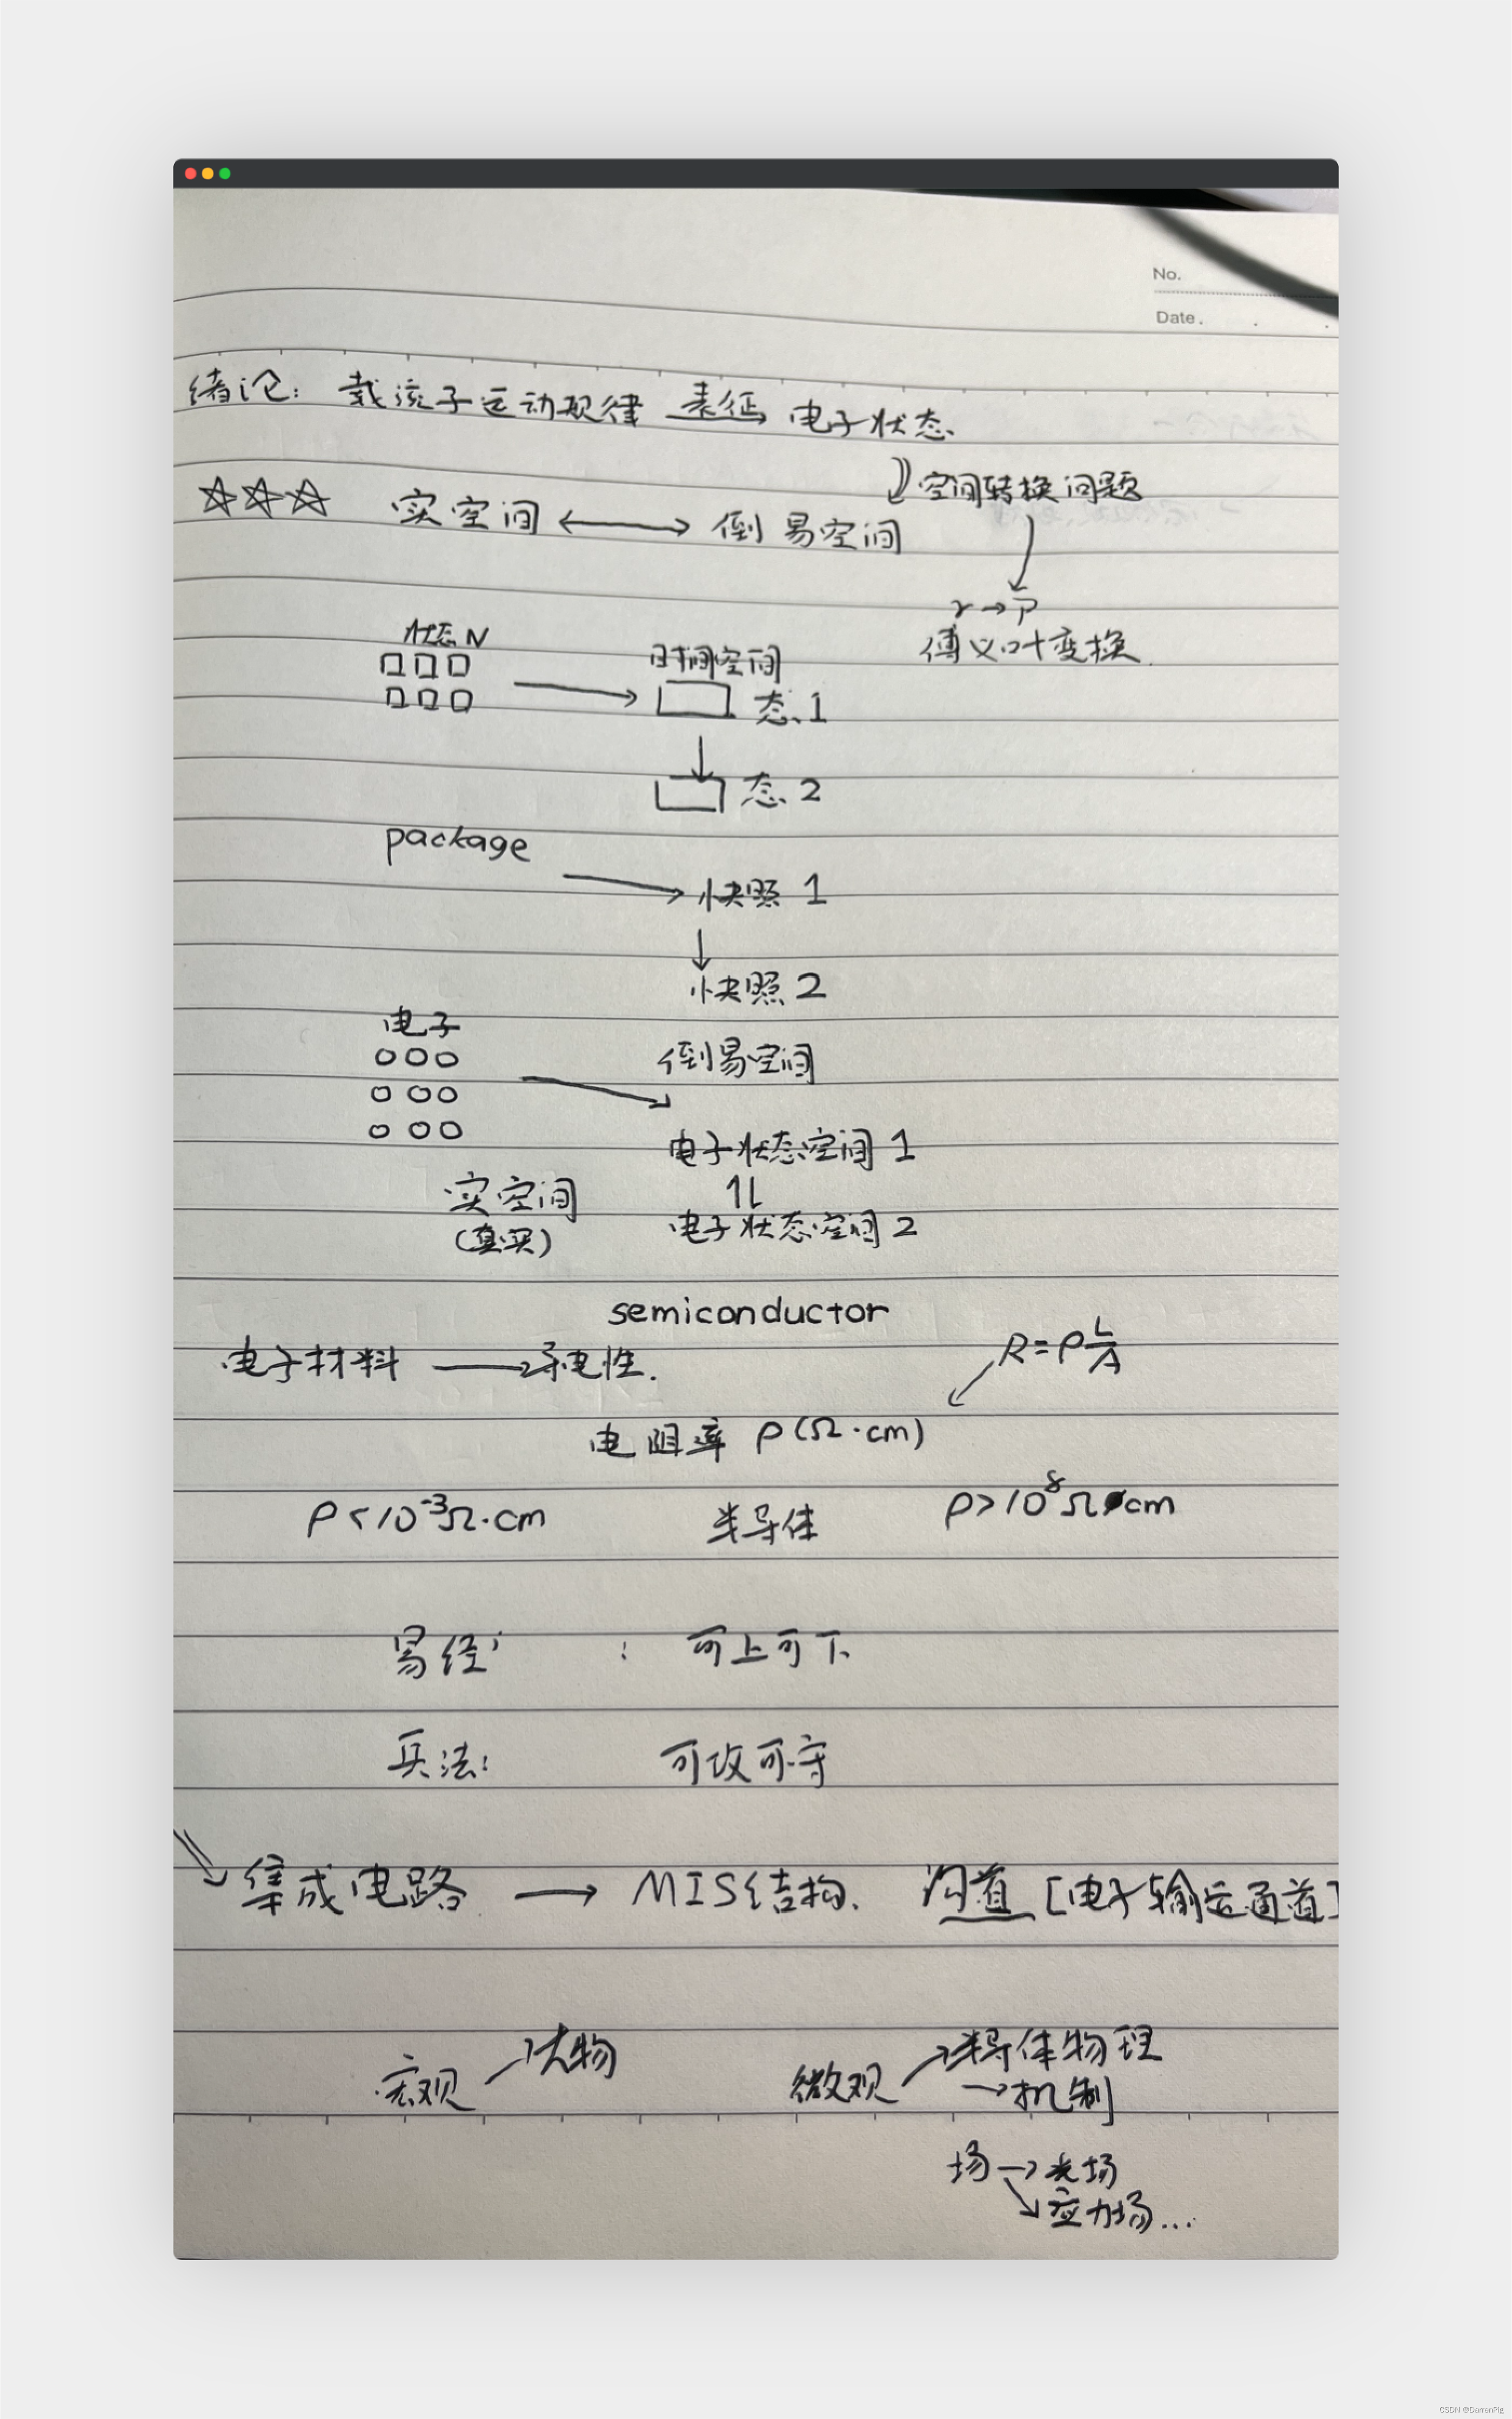 No.
Date.
绪论: 载流子运动规律 表征 电子状态
空间转换问题
实空间 ↔ 倒易空间
r→P
傅义叶变换
状态N
时间空间
态1
态2
package
→快照1
↓
快照2
电子
倒易空间
电子状态空间1
实空间
(真实)
电子状态空间2
semiconductor
R=ρL/A
电子材料 → 导电性.
电阻率 ρ(Ω·cm)
ρ<10⁻³Ω·cm 半导体 ρ>10⁸Ω·cm
易经 : 可上可下
兵法: 可攻可守
集成电路 → MIS结构. 沟道 [电子输运通道]
宏观 → 大物 微观 → 半导体物理
→机制
场→光场
应力场...
CSDN @DarrenPig